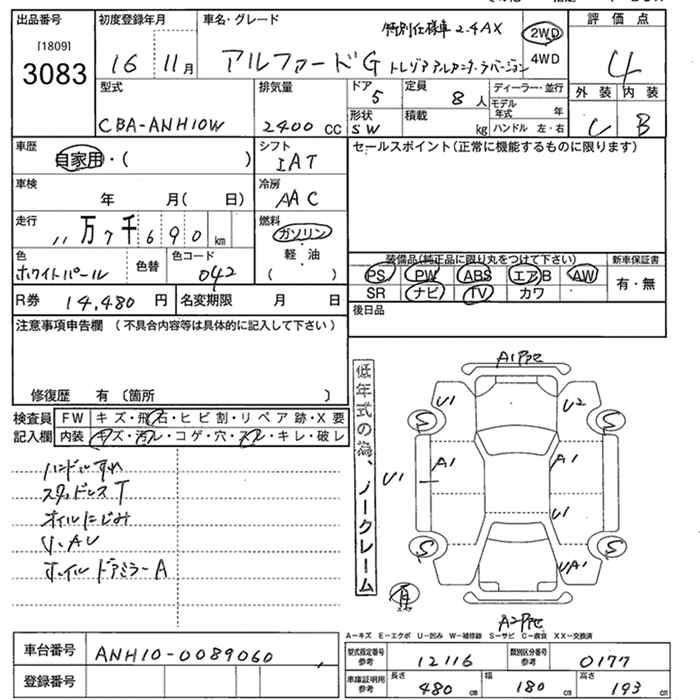 出品番号
[1809]
3083
初度登録年月
16 11月
車名・グレード
特別仕様車 2.4AX
アルファードG トレゾアアルカンターラバージョン
2WD
4WD
評価点
4
外装 内装
C B
型式
CBA-ANH10W
排気量
2400 CC
ドア
5
形状
SW
定員
8 人
積載
kg
ディーラー・並行
モデル年式 年
ハンドル 左・右
車歴
自家用・( )
シフト
IAT
セールスポイント(正常に機能するものに限ります)
車検
年 月( 日)
冷房
AAC
走行
11万7千690km
燃料
ガソリン
軽・油
( )
色
ホワイトパール
色替
色コード
042
装備品(純正品に限り丸をつけて下さい)
PS PW ABS エアB AW
SR ナビ TV カワ
新車保証書
有・無
R券 14,480 円
名変期限 月 日
後日品
注意事項申告欄 (不具合内容等は具体的に記入して下さい)
修復歴 有 〔箇所 〕
検査員
記入欄
FW キズ・飛石・ヒビ割・リペア跡・X要
内装 キズ・汚レ・コゲ・穴・スレ・キレ・破レ
ハンドルすれ
スタッドレスT
オイルにじみ
U・AU
ホイル ドアミラーA
低年式の為、ノークレーム
A1
U1
U2
S
S
A1
A1
U1
U1
S
S
UA1
A2
車台番号 ANH10-0089060
登録番号
A-キズ E-エクボ U-凹み W-補修跡 S-サビ C-腐食 XX-交換済
型式指定番号
参考
12116
類別区分番号
参考
0177
車庫証明用
参考
長さ 480 cm
幅 180 cm
高さ 193 cm